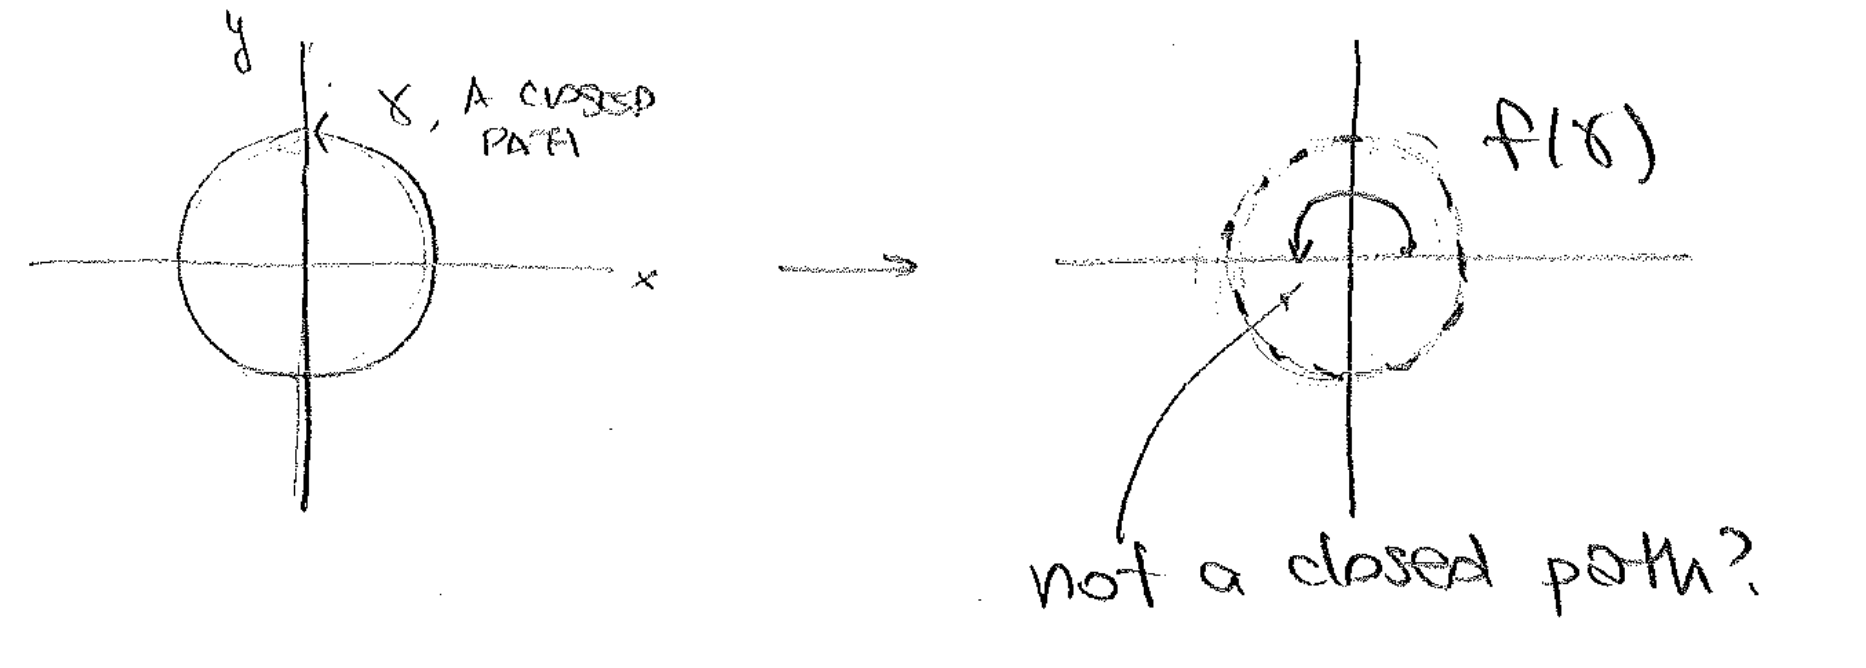 y
γ, A CLOSED
PATH
x
f(γ)
not a closed path?